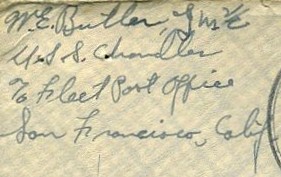 W. E. Butler, F 1/c
U.S.S. Chandler
To Fleet Post Office
San Francisco, Calif